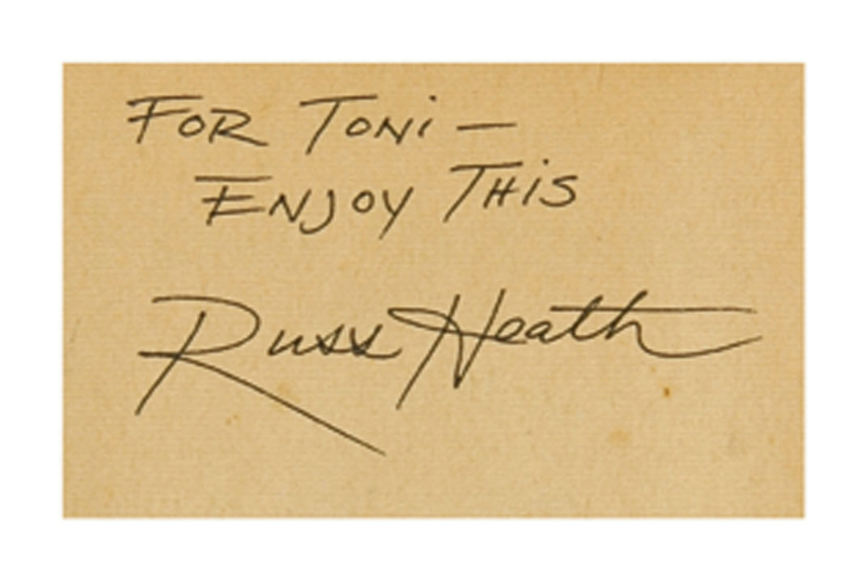 FOR TONi —
ENJOY THiS
Russ Heath